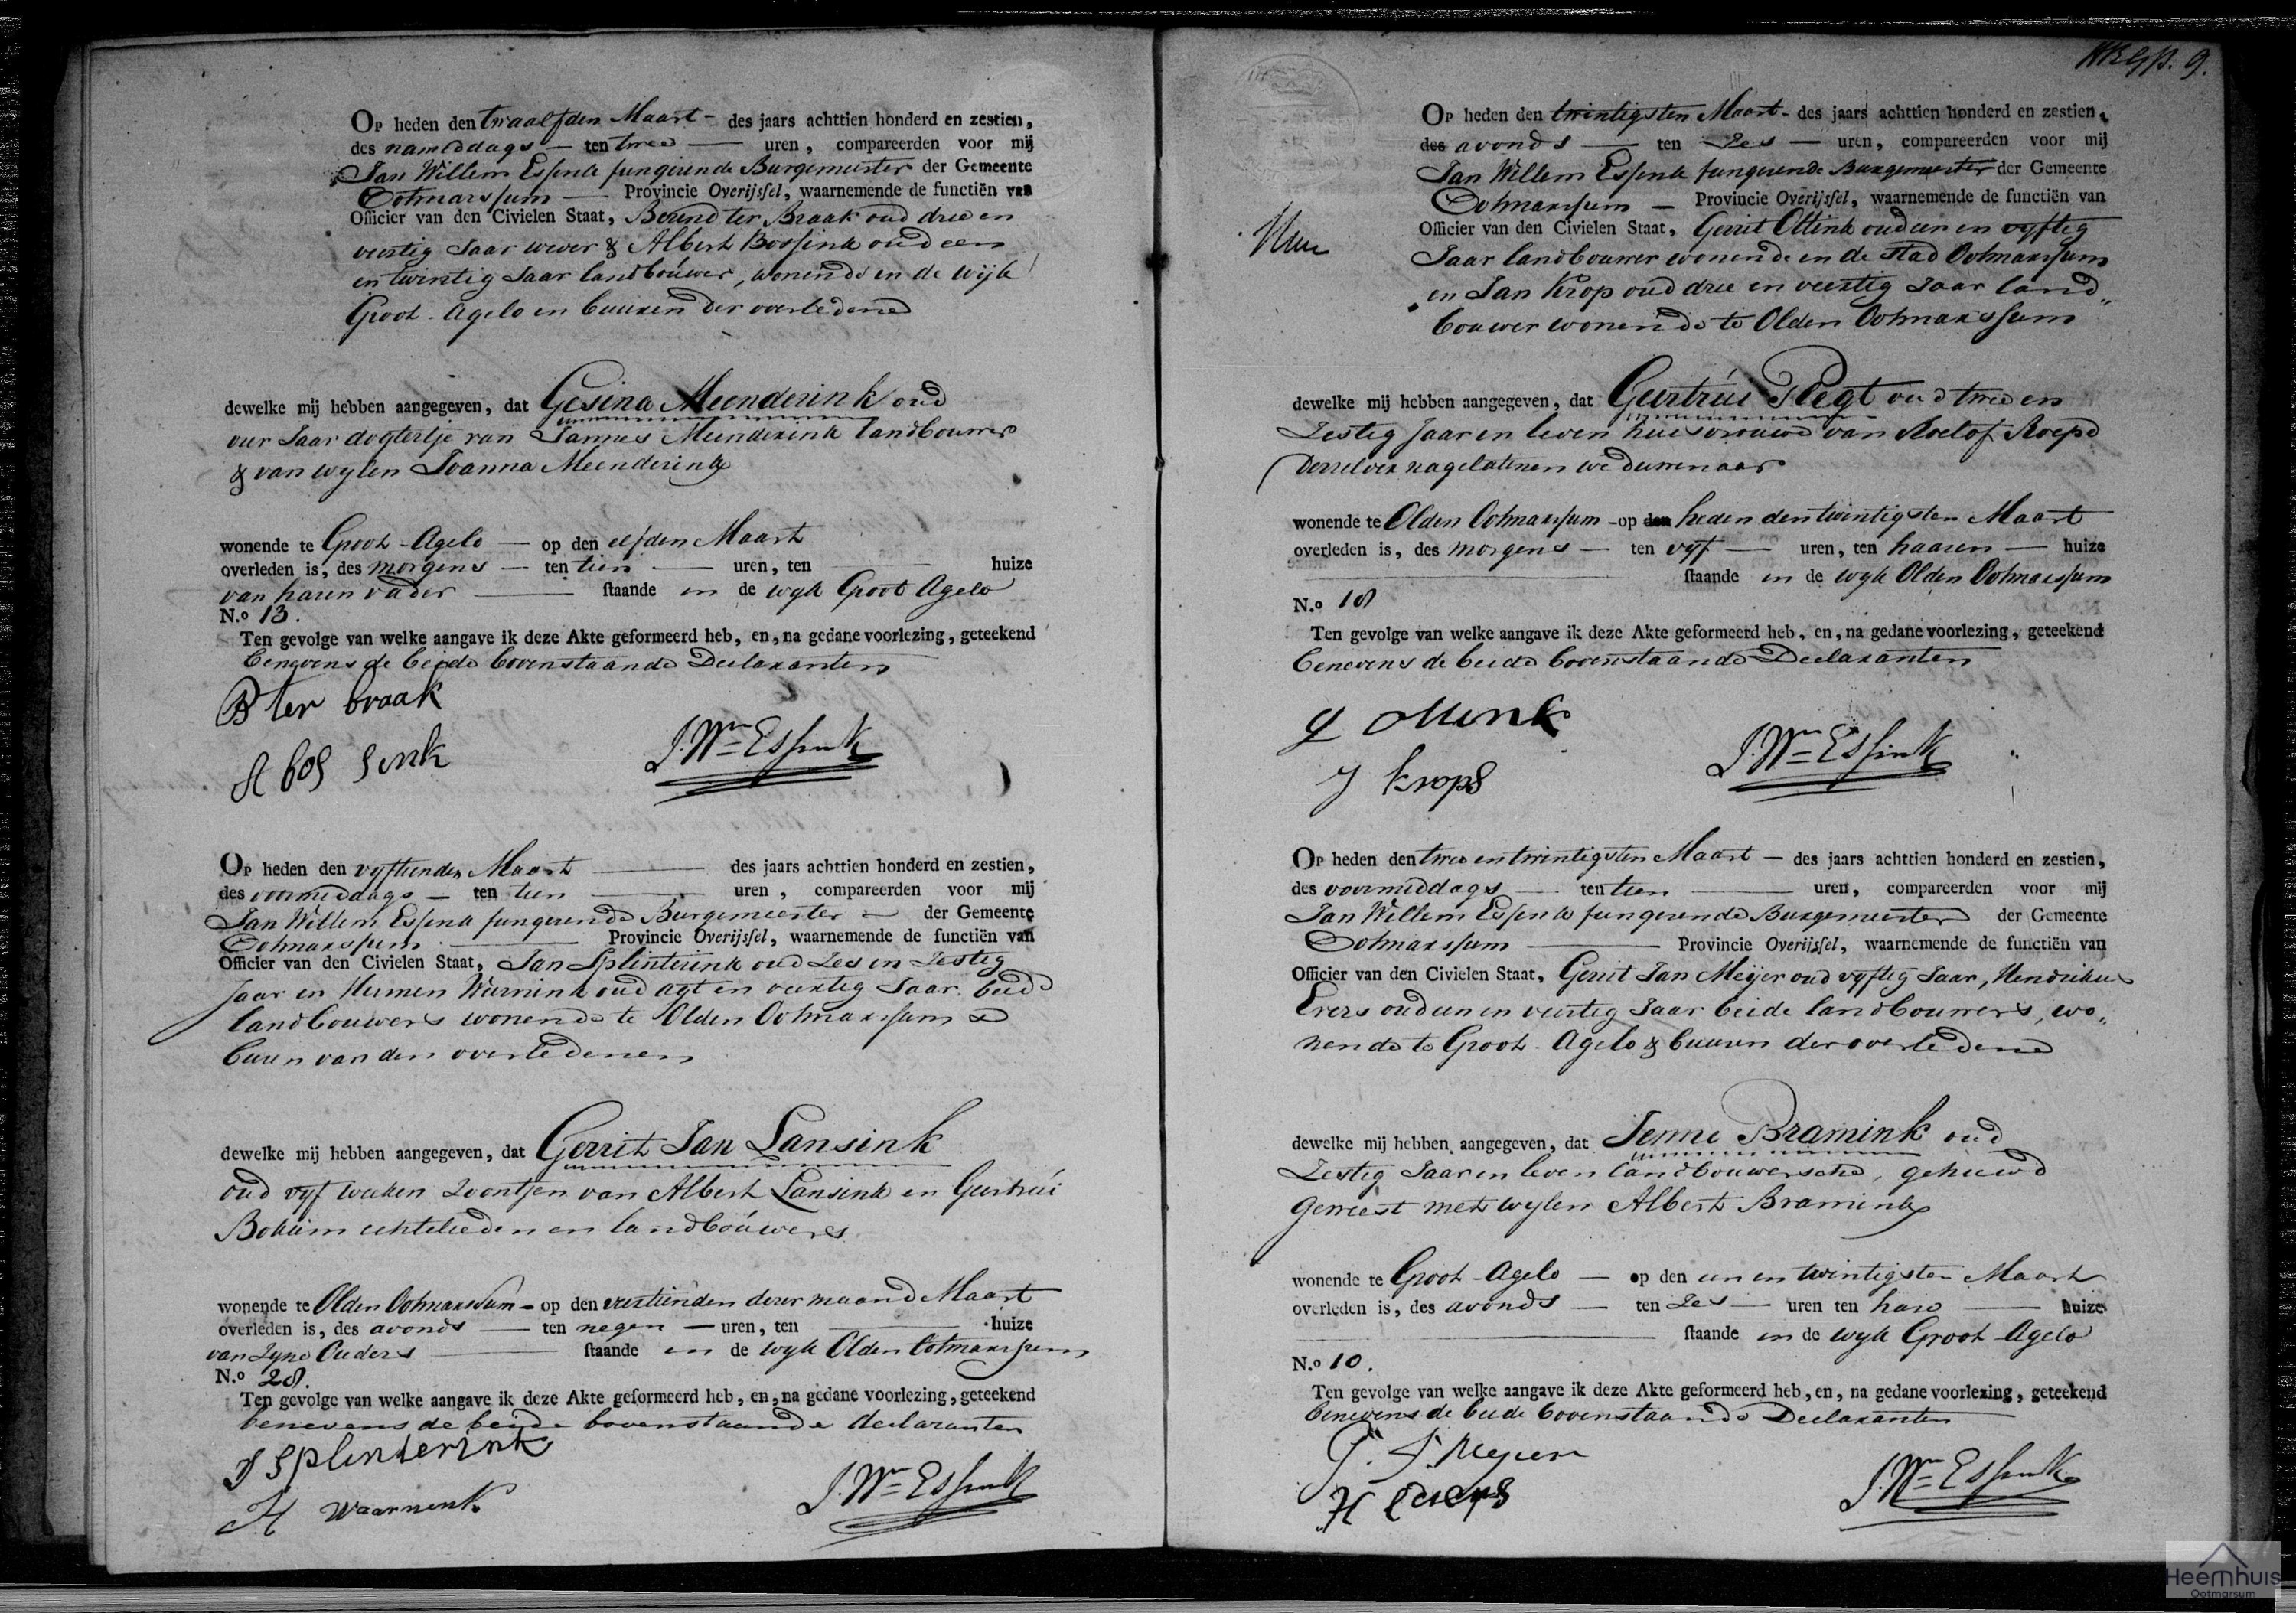 Op heden den twaalfden Maart - des jaars achttien honderd en zestien,
des namiddags — ten twee — uren, compareerden voor mij
Jan Willem Essink fungerende Burgemeester der Gemeente
Ootmarssum — Provincie Overijssel, waarnemende de functiën van
Officier van den Civielen Staat, Berend ter Braak oud drie en
veertig Jaar wever & Albert Bossink oud een
en twintig Jaar landbouwer, wonende in de wijk
Groot-Agelo en buuren der overledene
dewelke mij hebben aangegeven, dat Gesina Meenderink oud
vier Jaar dogtertje van Jannes Meenderink landbouwer
& van wylen Joanna Meenderink
wonende te Groot-Agelo — op den elfden Maart
overleden is, des morgens — ten tien — uren, ten — huize
van haren vader — staande in de wyk Groot Agelo
N.o 13.
Ten gevolge van welke aangave ik deze Akte geformeerd heb, en, na gedane voorlezing, geteekend
benevens de beide bovenstaande Declaranten
B ter braak
A bos sink
J. Wm Essink
Op heden den vyftienden Maart — des jaars achttien honderd en zestien,
des voormiddags — ten tien — uren, compareerden voor mij
Jan Willem Essink fungerende Burgemeester — der Gemeente
Ootmarssum — Provincie Overijssel, waarnemende de functiën van
Officier van den Civielen Staat, Jan Splinterink oud Zes en Zestig
Jaar en Hermen Warnink oud agt en veertig Jaar beide
landbouwers wonende te Olden Ootmarssum &
buren van den overledenen
dewelke mij hebben aangegeven, dat Gerrit Jan Lansink
oud vyf weeken Zoontjen van Albert Lansink en Geertrui
echtelieden en landbouwers
wonende te Olden Ootmarssum - op den veertienden dezer maand Maart
overleden is, des avonds — ten negen — uren, ten — huize
van Zyne Ouders — staande in de wyk Olden Ootmarssum
N.o 28.
Ten gevolge van welke aangave ik deze Akte geformeerd heb, en, na gedane voorlezing, geteekend
benevens de beide bovenstaande declaranten
J Splinterink
H Waarnenk
J. Wm Essink
9.
Op heden den twintigsten Maart - des jaars achttien honderd en zestien,
des avonds — ten Zes — uren, compareerden voor mij
Jan Willem Essink fungerende Burgemeester der Gemeente
Ootmarssum — Provincie Overijssel, waarnemende de functiën van
Officier van den Civielen Staat, Gerrit Ottink oud een en vyftig
Jaar landbouwer wonende in de stad Ootmarssum
en Jan Krop oud drie en veertig Jaar land„
bouwer wonende te Olden Ootmarssum
dewelke mij hebben aangegeven, dat Geertrui Plegt oud twee en
Zestig Jaar in leven huisvrouwe van Roelof Roepe
Derzelver nagelatenen weduwenaar
wonende te Olden Ootmarssum - op den heden den twintigsten Maart
overleden is, des morgens — ten vyf — uren, ten haaren — huize
staande in de wyk Olden Ootmarssum
N.o 18
Ten gevolge van welke aangave ik deze Akte geformeerd heb, en, na gedane voorlezing, geteekend
benevens de beide bovenstaande Declaranten
G Ottink
J krops
J. Wm Essink
Op heden den twee en twintigsten Maart — des jaars achttien honderd en zestien,
des voormiddags — ten tien — uren, compareerden voor mij
Jan Willem Essink fungerende Burgemeester der Gemeente
Ootmarssum — Provincie Overijssel, waarnemende de functiën van
Officier van den Civielen Staat, Gerrit Jan Meijer oud vyftig Jaar, Hendrikus
Evers oud een en veertig Jaar beide landbouwers, wo„
nende te Groot-Agelo & buuren der overledene
dewelke mij hebben aangegeven, dat Jenne Bramink oud
Zestig Jaar in leven landbouwersche, gehuwd
geweest met wylen Albert Bramink
wonende te Groot-Agelo — op den een en twintigsten Maart
overleden is, des avonds — ten Zes — uren ten hare — huize
staande in de wyk Groot-Agelo
N.o 10.
Ten gevolge van welke aangave ik deze Akte geformeerd heb, en, na gedane voorlezing, geteekend
benevens de beide bovenstaande Declaranten
G. J. Meyer
H Evers
J. Wm Essink
Heemhuis
Ootmarsum